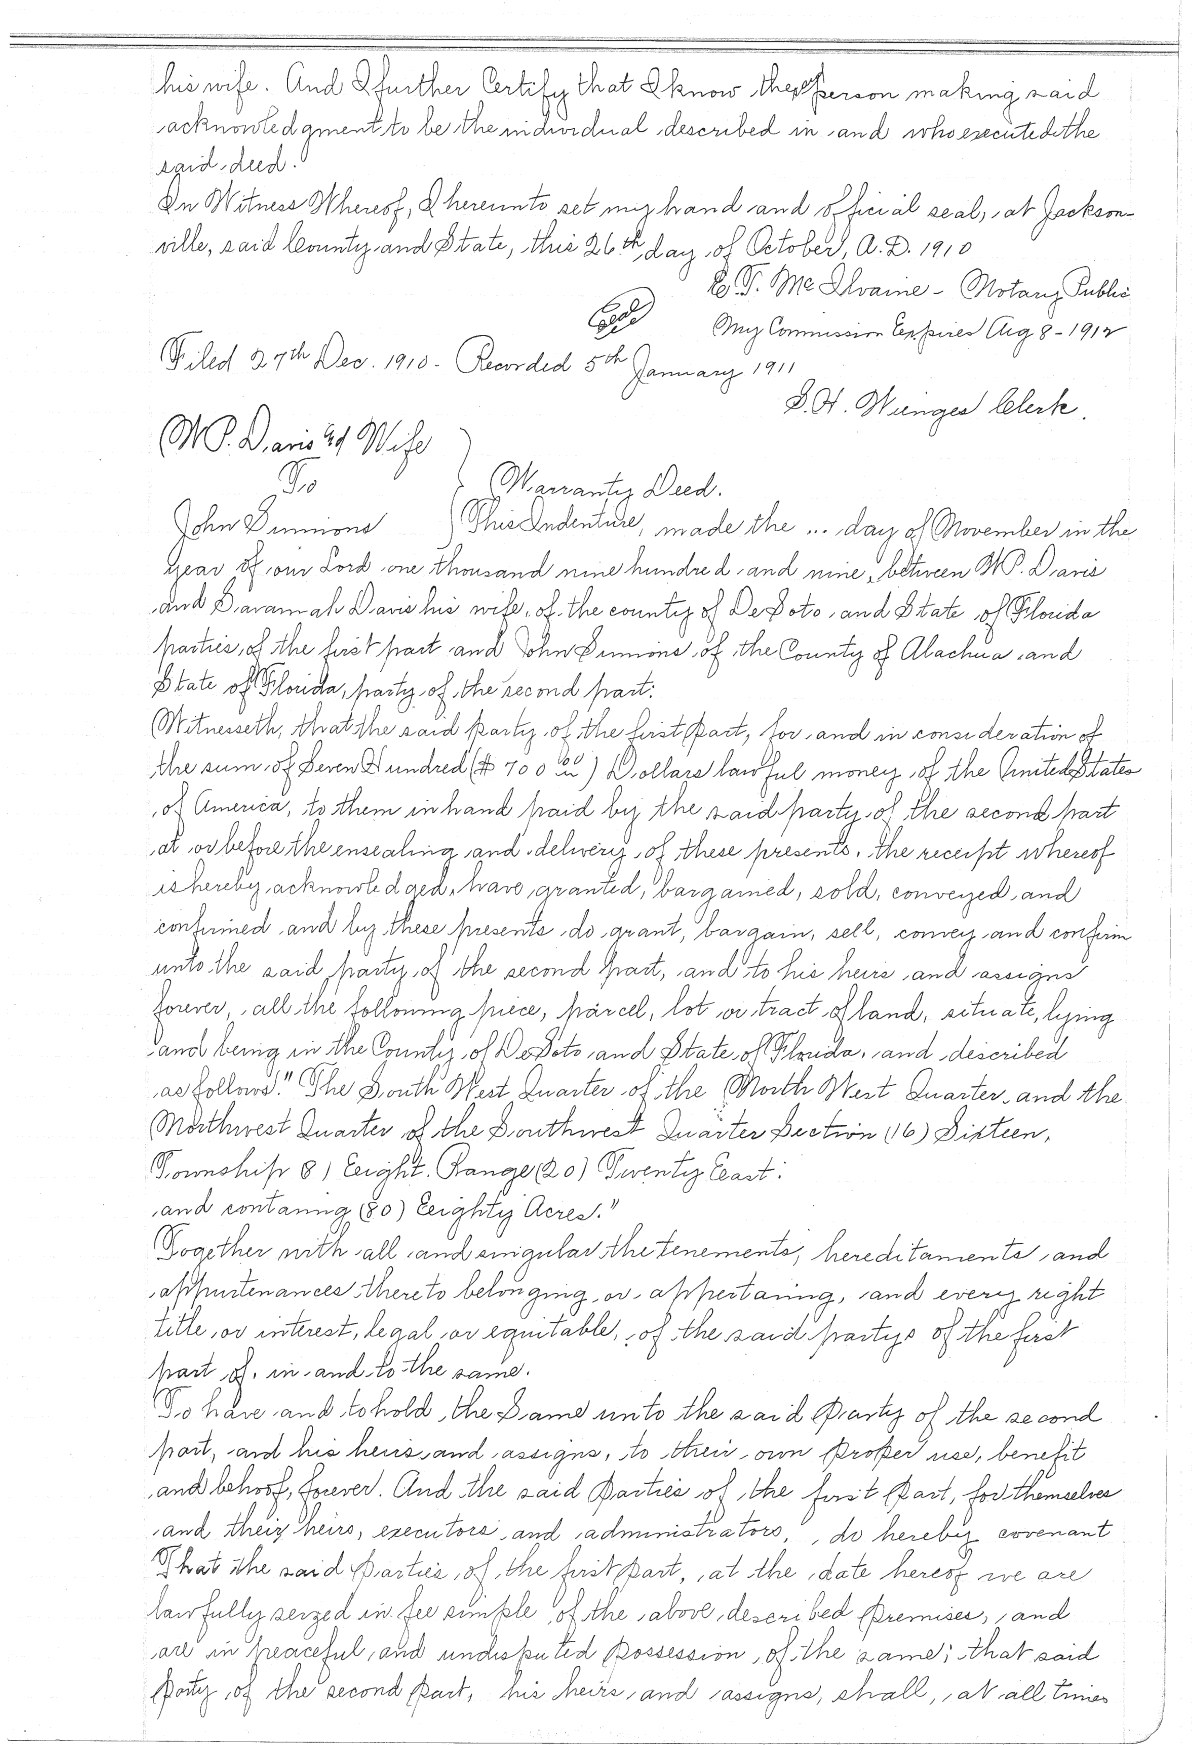 his wife. And I further Certify that I know the person making said
acknowledgment to be the individual described in and who executed the
said deed.
In Witness Whereof, I hereunto set my hand and official seal, at Jackson-
ville, said County and State, this 26th day of October, A.D. 1910
E. T. McIlvaine - Notary Public
Seal My Commission Expires Aug 8-1912
Filed 27th Dec. 1910. Recorded 5th January 1911
S. H. Wienges Clerk.
W.P. Davis and Wife
To Warranty Deed.
John Simmons This Indenture, made the ... day of November in the
year of our Lord one thousand nine hundred and nine, between W.P. Davis
and Savannah Davis his wife, of the county of DeSoto and State of Florida
parties of the first part and John Simmons of the County of Alachua and
State of Florida, party of the second part:
Witnesseth, that the said party of the first part, for and in consideration of
the sum of Seven Hundred ($ 700 00) Dollars lawful money of the United States
of America, to them in hand paid by the said party of the second part
at or before the ensealing and delivery of these presents, the receipt whereof
is hereby acknowledged, have granted, bargained, sold, conveyed and
confirmed and by these presents do grant, bargain, sell, convey and confirm
unto the said party of the second part, and to his heirs and assigns
forever, all the following piece, parcel, lot or tract of land, situate, lying
and being in the County of DeSoto and State of Florida, and described
as follows: "The South West Quarter of the North West Quarter and the
Northwest Quarter of the Southwest Quarter Section (16) Sixteen,
Township 8) Eeight. Range (20) Twenty East:
and contaning (80) Eeighty Acres."
Together with all and singular the tenements, hereditaments and
appurtenances thereto belonging or appertaning, and every right
title or interest, legal or equitable, of the said partys of the first
part of, in and to the same.
To have and to hold the Same unto the said Party of the second
part, and his heirs and assigns, to their own proper use, benefit
and behoof, forever. And the said Parties of the first Part, for themselves
and their heirs, executors and administrators, do hereby covenant
That the said Parties of the first part, at the date hereof we are
lawfully seized in fee simple of the above described Premises, and
are in peaceful and undisputed possession of the same; that said
Party of the second Part, his heirs and assigns, shall, at all times